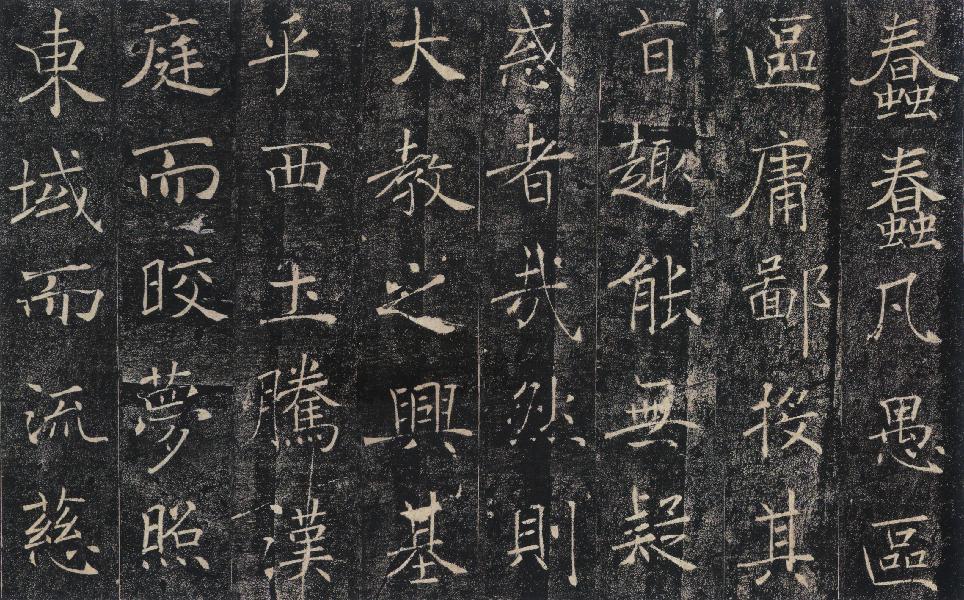 蠢蠢凡愚區
區庸鄙投其
旨趣能無疑
惑者哉然則
大教之興基
乎西土騰漢
庭而皎夢照
東域而流慈